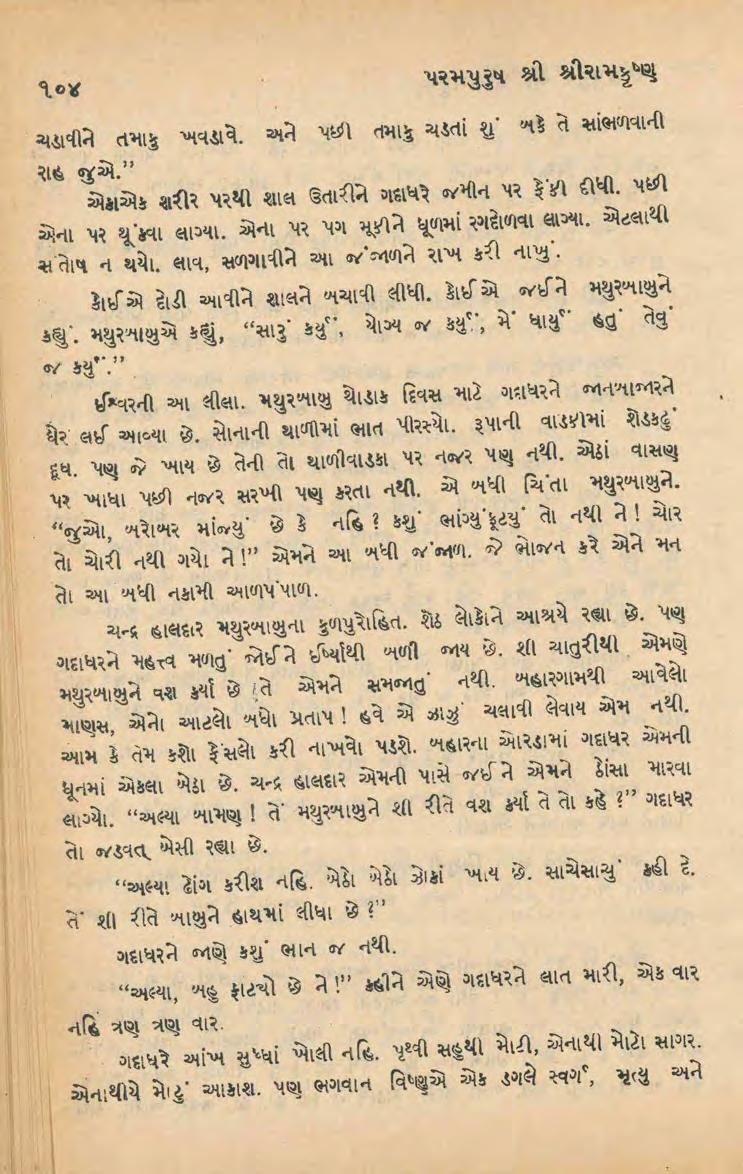 ૧૦૪
પરમપુરુષ શ્રી શ્રીરામકૃષ્ણ
ચડાવીને તમાકુ ખવડાવે. અને પછી તમાકુ ચડતાં શું બકે તે સાંભળવાની
રાહ જુએ.”
એકાએક શરીર પરથી શાલ ઉતારીને ગદાધરે જમીન પર ફેંકી દીધી. પછી
એના પર થૂંકવા લાગ્યા. એના પર પગ મૂકીને ધૂળમાં રગદોળવા લાગ્યા. એટલાથી
સંતોષ ન થયો. લાવ, સળગાવીને આ જંજાળને રાખ કરી નાખું.
કોઈએ દોડી આવીને શાલને બચાવી લીધી. કોઈએ જઈને મથુરબાબુને
કહ્યું. મથુરબાબુએ કહ્યું, “સારું કર્યું, યોગ્ય જ કર્યું, મેં ધાર્યું હતું તેવું
જ કર્યું.”
ઈશ્વરની આ લીલા. મથુરબાબુ થોડાક દિવસ માટે ગદાધરને જાનબાજારને
ઘેર લઈ આવ્યા છે. સોનાની થાળીમાં ભાત પીરસ્યો. રૂપાની વાડકીમાં શેડકઢું
દૂધ. પણ જે ખાય છે તેની તો થાળીવાડકા પર નજર પણ નથી. એઠાં વાસણ
પર ખાધા પછી નજર સરખી પણ કરતા નથી. એ બધી ચિંતા મથુરબાબુને.
“જુઓ, બરોબર માંજ્યું છે કે નહિ? કશું ભાંગ્યુંફૂટ્યું તો નથી ને! ચોર
તો ચોરી નથી ગયો ને!” એમને આ બધી જંજાળ. જે ભોજન કરે એને મન
તો આ બધી નકામી આળપંપાળ.
ચન્દ્ર હાલદાર મથુરબાબુના કુળપુરોહિત. શેઠ લોકોને આશ્રયે રહ્યા છે. પણ
ગદાધરને મહત્ત્વ મળતું જોઈને ઈર્ષ્યાથી બળી જાય છે. શી ચાતુરીથી એમણે
મથુરબાબુને વશ કર્યા છે તે એમને સમજાતું નથી. બહારગામથી આવેલો
માણસ, એનો આટલો બધો પ્રતાપ! હવે એ ઝાઝું ચલાવી લેવાય એમ નથી.
આમ કે તેમ કશો ફેંસલો કરી નાખવો પડશે. બહારના ઓરડામાં ગદાધર એમની
ધૂનમાં એકલા બેઠા છે. ચન્દ્ર હાલદાર એમની પાસે જઈને એમને ઠોંસા મારવા
લાગ્યો. “અલ્યા બામણ! તેં મથુરબાબુને શી રીતે વશ કર્યા તે તો કહે?” ગદાધર
તો જડવત્ બેસી રહ્યા છે.
“અલ્યા ઢોંગ કરીશ નહિ. બેઠો બેઠો ઝોકાં ખાય છે. સાચેસાચું કહી દે.
તેં શી રીતે બાબુને હાથમાં લીધા છે?”
ગદાધરને જાણે કશું ભાન જ નથી.
“અલ્યા, બહુ ફાટ્યો છે ને!” કહીને એણે ગદાધરને લાત મારી, એક વાર
નહિ ત્રણ ત્રણ વાર.
ગદાધરે આંખ સુધ્ધાં ખોલી નહિ. પૃથ્વી સહુથી મોટી, એનાથી મોટો સાગર.
એનાથીયે મોટું આકાશ. પણ ભગવાન વિષ્ણુએ એક ડગલે સ્વર્ગ, મૃત્યુ અને